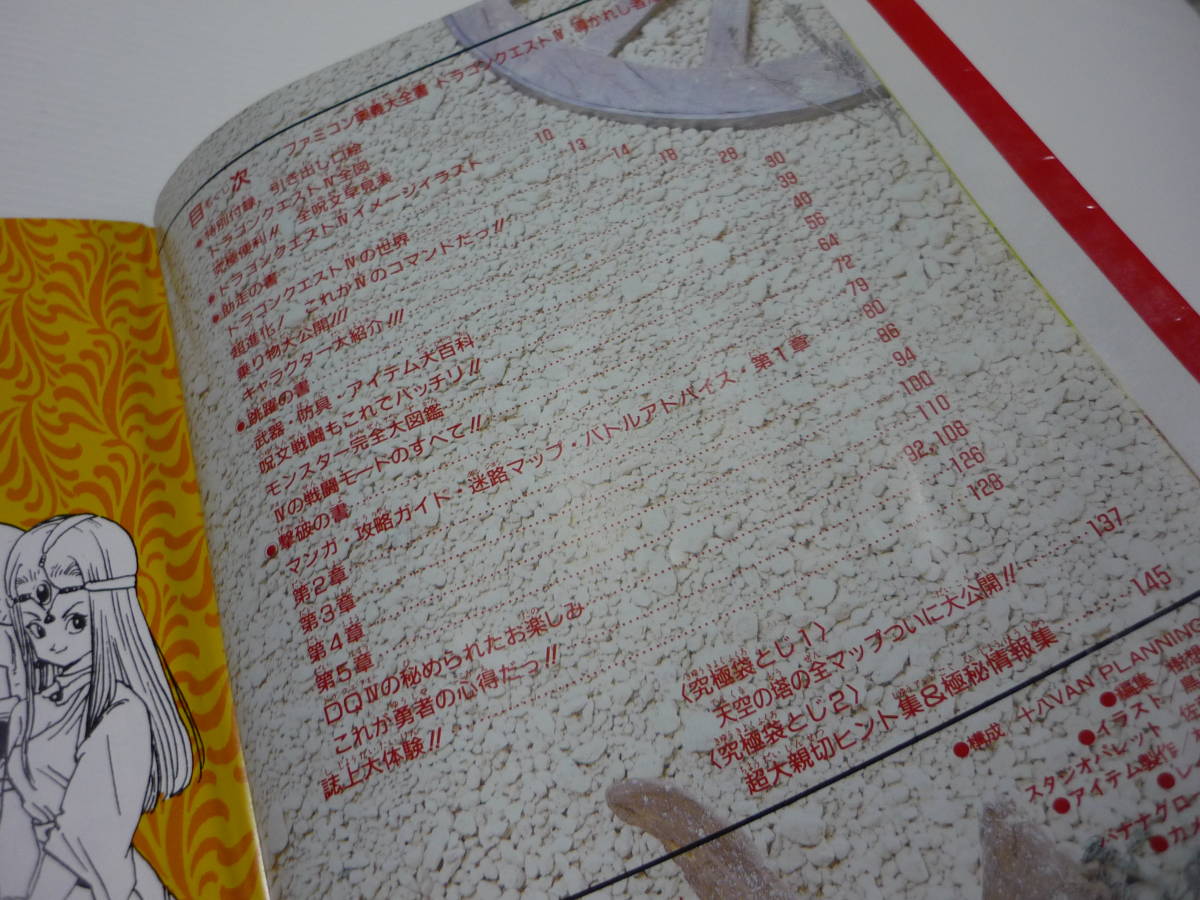 ファミコン奥義大全書 ドラゴンクエストⅣ 導かれし者
目次
●特別付録 引き出し口絵
ドラゴンクエストⅣ全図
究極便利!! 全呪文早見表
●ドラゴンクエストⅣイメージイラスト
●助走の書
ドラゴンクエストⅣの世界 10
超進化! これがⅣのコマンドだっ!! 13
乗り物大公開!!! 14
キャラクター大紹介!!! 18
●跳躍の書 28
武器・防具・アイテム大百科 30
呪文戦闘もこれでバッチリ!! 39
モンスター完全大図鑑 40
Ⅳの戦闘モードのすべて!! 56
●撃破の書 64
マンガ・攻略ガイド・迷路マップ・バトルアドバイス・第1章 72
第2章 79
第3章 80
第4章 86
第5章 94
DQⅣの秘められたお楽しみ 100
これが勇者の心得だっ!! 110
誌上大体験!! 92, 108
126
128
〈究極袋とじ1〉
天空の塔の全マップついに大公開!! 137
〈究極袋とじ2〉
超大親切ヒント集&極秘情報集 145
●構成 十八VAN PLANNING
●編集
●イラスト
スタジオパレット
●アイテム製作
バナナグロー